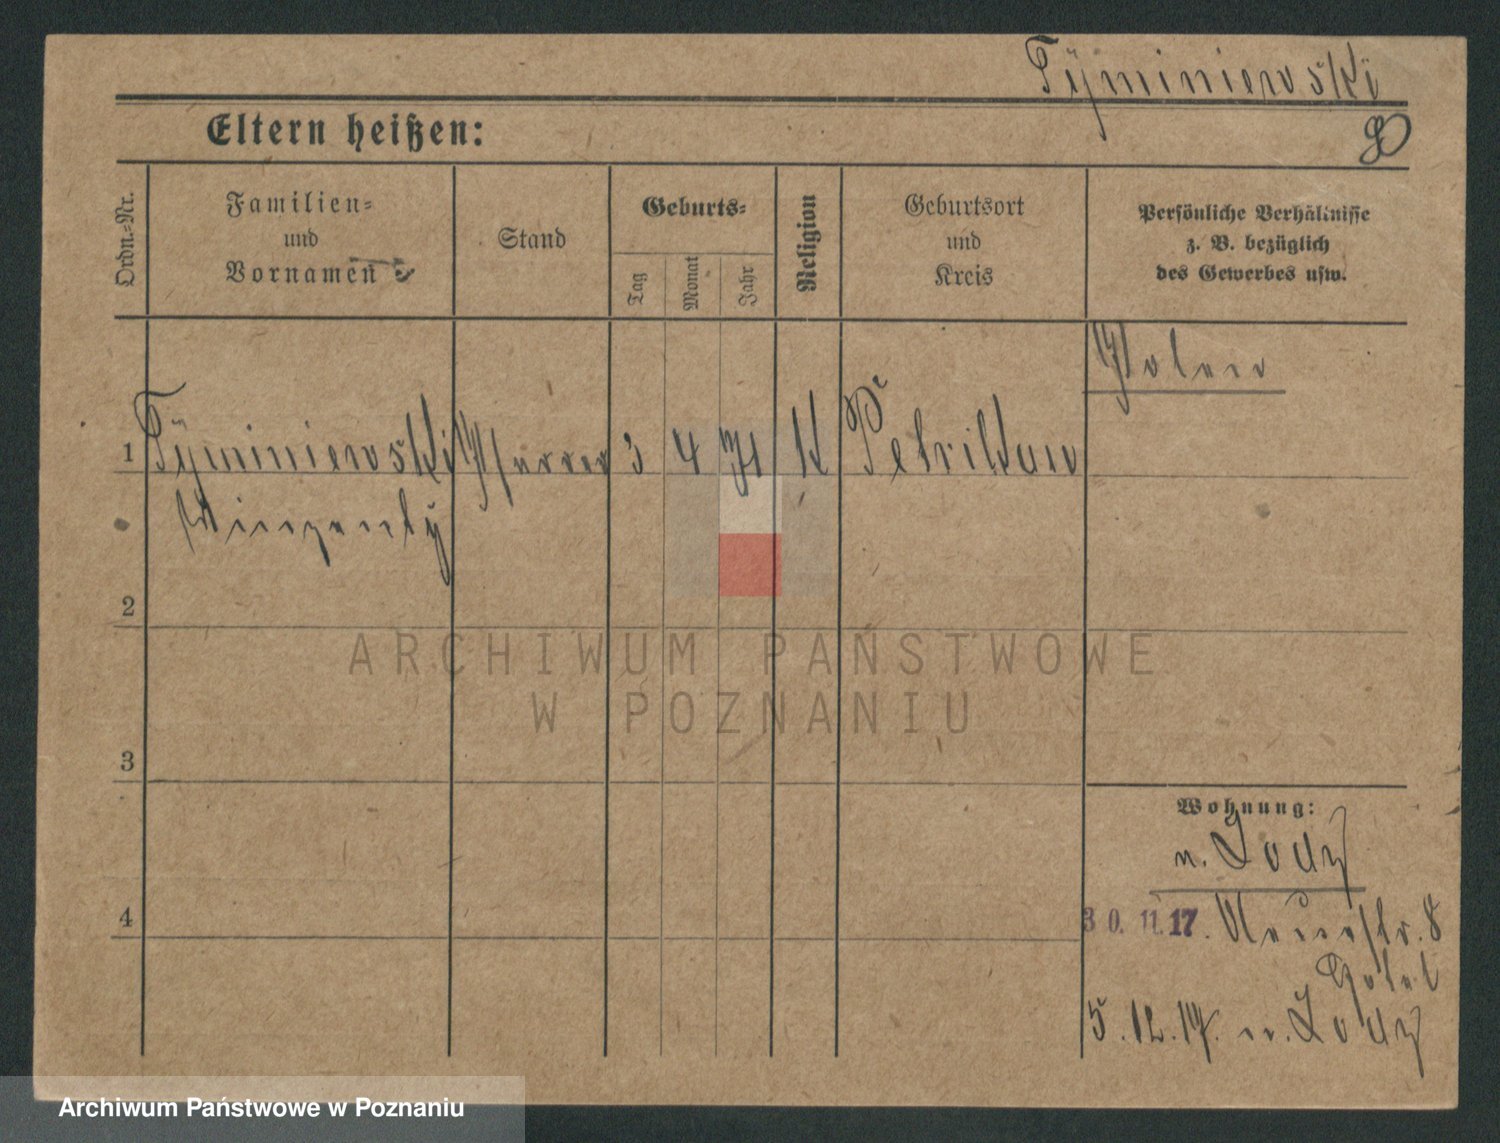 Tÿminiewski
Eltern heißen:
Ordn.=Nr.
Familien=
und
Vornamen
Stand
Geburts=
Tag
Monat
Jahr
Religion
Geburtsort
und
Kreis
Persönliche Verhältnisse
z. B. bezüglich
des Gewerbes usw.
Polen
1 Tÿminiewski Pfarrer 3 4 71 K Petrikau
Winzenty
2
3
4
Wohnung:
n. Lodz
30.11.17. Neuestr. 8
Hotel
5.12.17. n. Lodz
ARCHIWUM PAŃSTWOWE
W POZNANIU
Archiwum Państwowe w Poznaniu